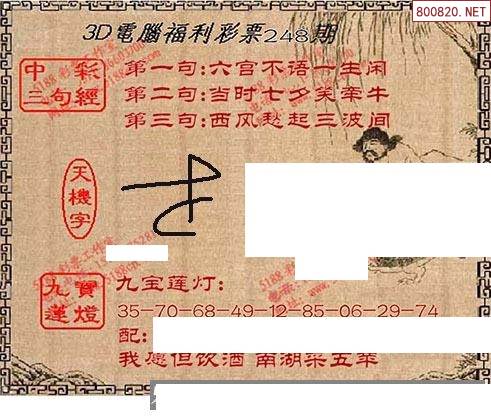 800820.NET
3D電腦福利彩票248期
中彩
三句經
第一句:六宫不语一生闲
第二句:当时七夕笑牵牛
第三句:西风愁起三波间
天機字
九寶
蓮燈
九宝莲灯:
35-70-68-49-12-85-06-29-74
配:
我愿但饮酒 南湖采五苹